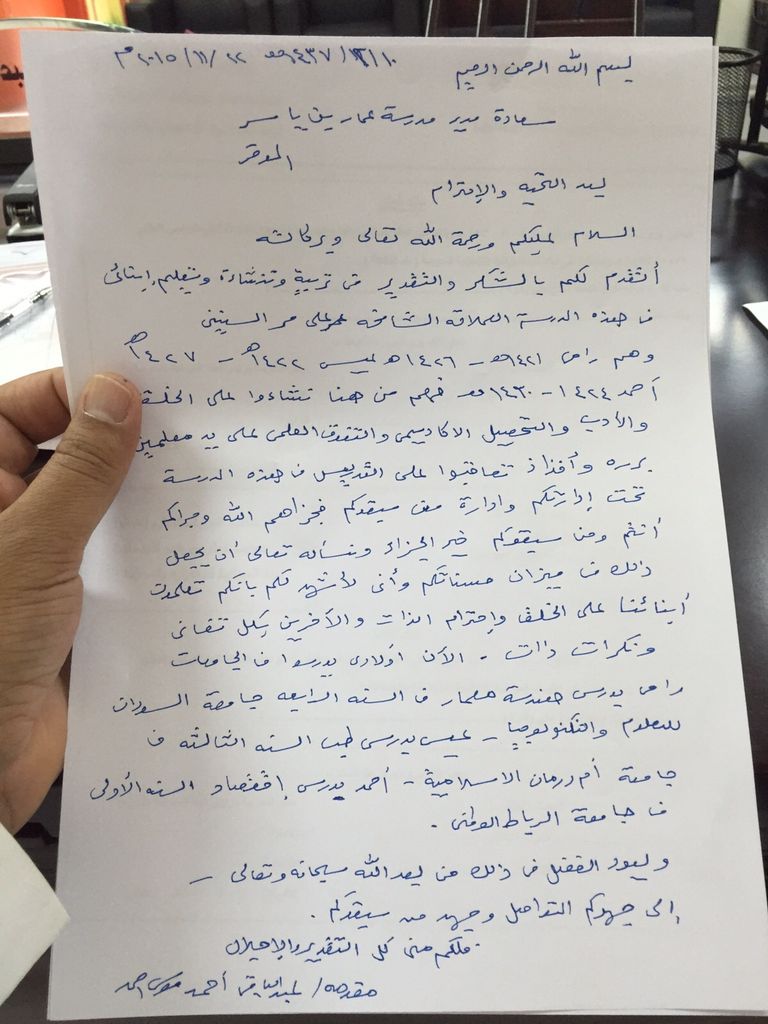 بسم الله الرحمن الرحيم ١٤٣٧/١٢/١٠هـ ٢٠١٥/١١/٢٢م
سعادة مدير مدرسة عمار بن ياسر
الموقر
بعد التحيه والإحترام
السلام عليكم ورحمة الله تعالى وبركاته
أتقدم لكم بالشكر والتقدير في تربية وتنشاءة وتعليم إبنائى
في هذه المدرسة العملاقة الشامخه على مر السنين
وهم رامى ١٤٢١هـ - ١٤٢٦هـ عيسى ١٤٢٢هـ - ١٤٢٧هـ
أحمد ١٤٢٤ - ١٤٣٠هـ فهم من هنا نشاءوا على الخلق
والأدب والتحصيل الاكاديمى والتفوق العلمى على يد معلمين
برره وأفذاذ تعاقبوا على التدريس في هذه المدرسة
تحت إدارتكم وادارة من سبقكم فجزاهم الله وجزاكم
أنتم ومن سبقوكم خير الجزاء ونسأله تعالى أن يجعل
ذالك في ميزان حسناتكم وأنى لأشهد لكم بانكم
أبنائنا على الخلق وإحترام الذات والآخرين بكل تفانى
ونكرات ذات - الآن اولادى يدرسوا في الجامعات
رامى يدرس هندسة معمار في السنه الرابعه جامعة السودان
للعلوم والتكنولوجيا - عيسى يدرس طب السنه الثالثه في
جامعة أم درمان الاسلامية - أحمد يدرس إقتصاد السنه الأولى
في جامعة الرباط الوطنى .
ويعود الفضل في ذالك من بعد الله سبحانه وتعالى -
إلى جهدكم التواصل وجهد من سبقكم .
فلكم منى كل التقدير والإجلال
مقدمه / عبدالباقى أحمد موسى احمد